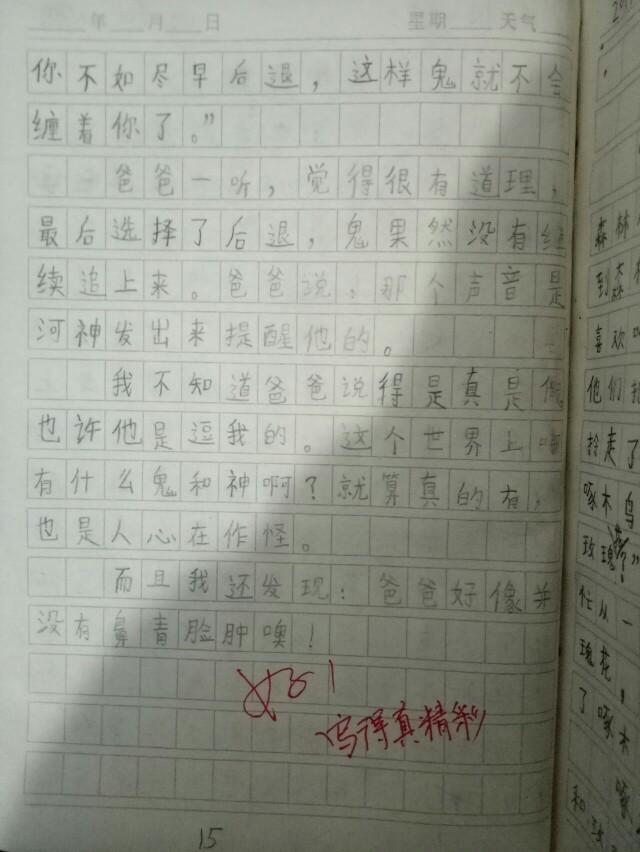 年 月 日 星期 天气
你不如尽早后退，这样鬼就不会
缠着你了。”
爸爸一听，觉得很有道理，
最后选择了后退，鬼果然没有继
续追上来。爸爸说，那个声音是
河神发出来提醒他的。
我不知道爸爸说得是真是假，
也许他是逗我的。这个世界上哪
有什么鬼和神啊？就算真的有，
也是人心在作怪。
而且我还发现：爸爸好像并
没有鼻青脸肿噢！
好！
写得真精彩
15
森林
到森
喜欢
他们
拎走了
啄木鸟
玫瑰
忙从一
瑰花，
了啄木
啄
和玫